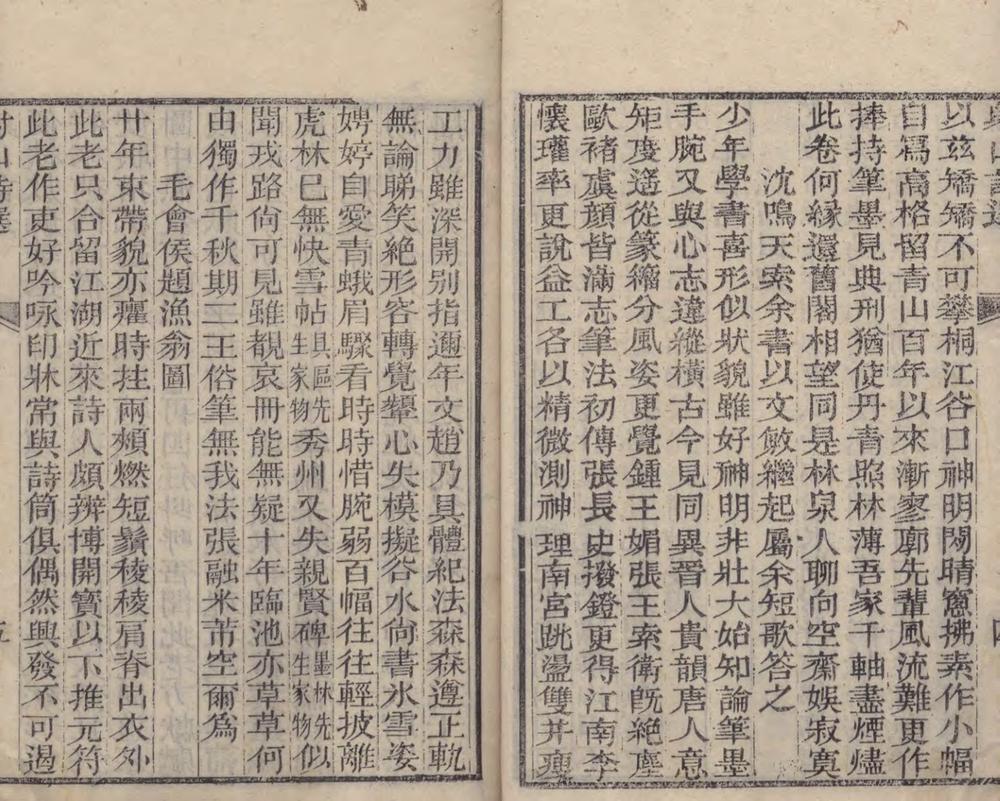 以兹矯矯不可攀桐江谷口神明閟晴窻拂素作小幅
自寫高格留青山百年以來漸寥廓先輩風流難更作
捧持筆墨見典刑猶使丹青照林薄吾家千軸盡煙燼
此卷何緣還舊閣相望同是林泉人聊向空齋娛寂寞
沈鳴天索余書以文敏繼起屬余短歌答之
少年學書喜形似狀貌雖好神明非壯大始知論筆墨
手腕又與心志違縱橫古今見同異晉人貴韻唐人意
矩度遥從篆籀分風姿更覺鍾王媚張王索衛旣絕塵
歐褚虞顏皆滿志筆法初傳張長史撥鐙更得江南李
懷瓘率更說益工各以精微測神理南宮跳盪雙井瘦
工力雖深開別指邇年文趙乃具體紀法森森遵正軌
無論睇笑絕形容轉覺顰心失模擬谷水尙書氷雪姿
娉婷自愛青蛾眉驟看時時惜腕弱百幅往往輕披離
虎林已無快雪帖吳區先生家物秀州又失親賢碑墨林先生家物似
聞戎路尙可見雖覩哀冊能無疑十年臨池亦草草何
由獨作千秋期二王俗筆無我法張融米芾空爾爲
毛會侯題漁翁圖
廿年束帶貌亦癯時挂兩頰燃短鬚稜稜肩脊出衣外
此老只合留江湖近來詩人頗辨博開寶以下推元符
此老作更好吟咏印牀常與詩筒俱偶然興發不可遏
五